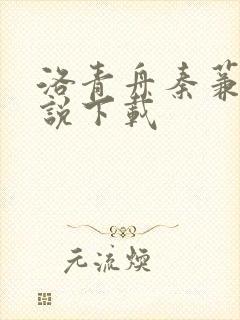 洛青舟秦蒹
說下載
元流煥